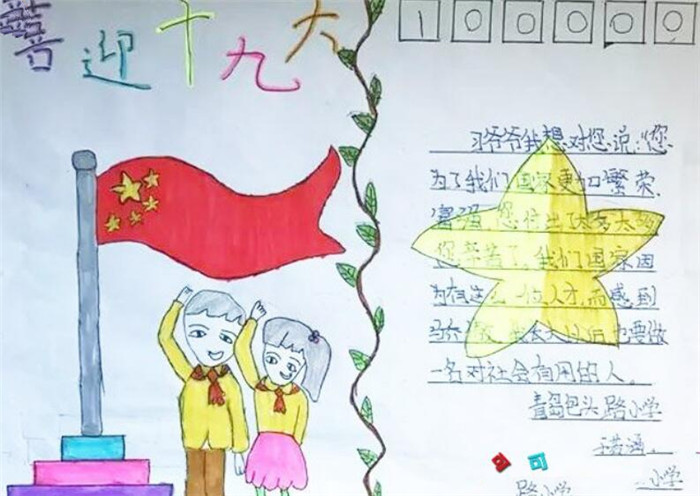 喜迎十九大
100000
习爷爷我想对您说:“您
为了我们国家更加繁荣、
富强,您付出了太多太多
您辛苦了,我们国家因
为有这 一位人才,而感到
长大以后也要做
一名对社会有用的人。
青岛包头路小学
小学
路小学